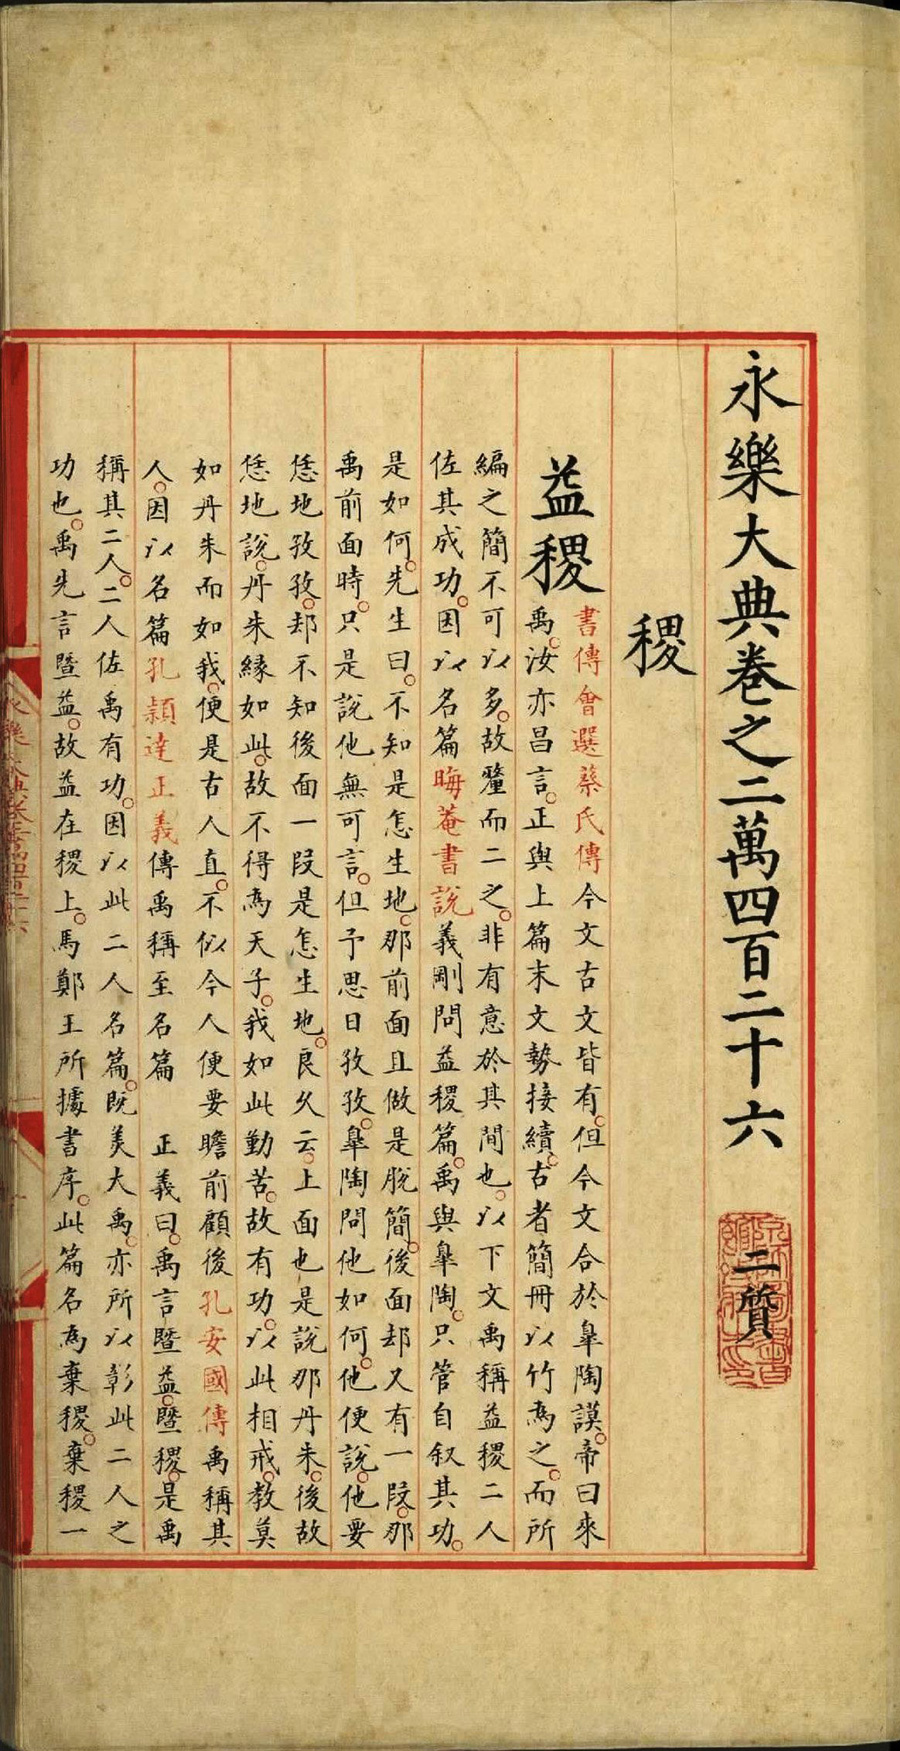 永樂大典卷之二萬四百二十六 二質
稷
益稷
書傳會選蔡氏傳今文古文皆有。但今文合於臯陶謨。帝曰來
禹。汝亦昌言。正與上篇末文勢接續。古者簡冊以竹爲之。而所
編之簡不可以多。故釐而二之。非有意於其間也。以下文禹稱益稷二人
佐其成功。因以名篇晦菴書說義剛問益稷篇。禹與臯陶。只管自叙其功。
是如何。先生曰。不知是怎生地。那前面且做是脫簡。後面却又有一段。那
禹前面時。只是說他無可言。但予思日孜孜。臯陶問他如何。他便說。他要
恁地孜孜。却不知後面一段是怎生地。良久云。上面也是說那丹朱。後故
恁地說。丹朱緣如此。故不得爲天子。我如此勤苦。故有功。以此相戒。教莫
如丹朱而如我。便是古人直。不似今人便要瞻前顧後孔安國傳禹稱其
人。因以名篇孔穎達正義傳禹稱至名篇 正義曰。禹言暨益。暨稷。是禹
稱其二人。二人佐禹有功。因以此二人名篇。既美大禹。亦所以彰此二人之
功也。禹先言暨益。故益在稷上。馬鄭王所據書序。此篇名爲棄稷。棄稷一